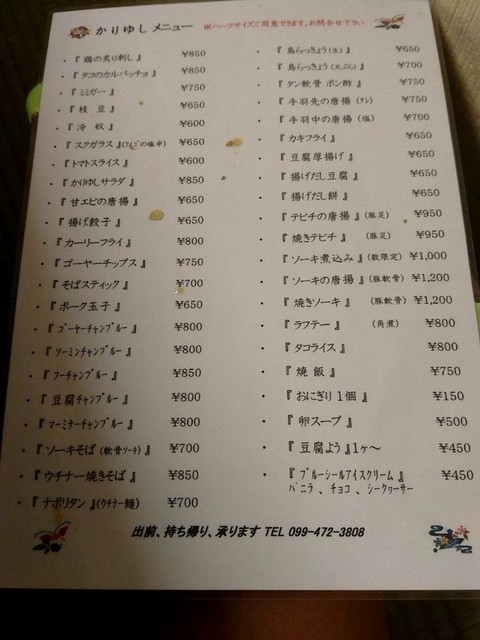 かりゆし メニュー ※ハーフサイズご用意できます。お問合せ下さい
・『 鶏の炙り刺し 』 ¥850
・『 タコのカルパッチョ 』 ¥850
・『 ミミガー 』 ¥750
・『 枝 豆 』 ¥650
・『 冷 奴 』 ¥600
・『 スクガラス 』(アイゴの塩辛) ¥650
・『 トマトスライス 』 ¥600
・『 かりゆしサラダ 』 ¥850
・『 甘エビの唐揚 』 ¥650
・『 揚げ餃子 』 ¥650
・『 カーリーフライ 』 ¥800
・『 ゴーヤーチップス 』 ¥750
・『 そばスティック 』 ¥700
・『 ポーク玉子 』 ¥650
・『 ゴーヤーチャンプルー 』 ¥800
・『 ソーミンチャンプルー 』 ¥800
・『 フーチャンプルー 』 ¥850
・『 豆腐チャンプルー 』 ¥800
・『 マーミナーチャンプルー 』 ¥800
・『 ソーキそば (軟骨ソーキ) 』 ¥700
・『 ウチナー焼きそば 』 ¥850
・『 ナポリタン 』(ウチナー麺) ¥700
・『 島らっきょう (生) 』 ¥650
・『 島らっきょう (天ぷら) 』 ¥700
・『 タン軟骨 ポン酢 』 ¥750
・『 手羽先の唐揚 (タレ) 』 ¥750
・『 手羽中の唐揚 (塩) 』 ¥700
・『 カキフライ 』 ¥650
・『 豆腐厚揚げ 』 ¥650
・『 揚げだし豆腐 』 ¥650
・『 揚げだし餅 』 ¥650
・『 テビチの唐揚 』 (豚足) ¥950
・『 焼きテビチ 』 (豚足) ¥950
・『 ソーキ煮込み 』 (数限定) ¥1,000
・『 ソーキの唐揚 』 (豚軟骨) ¥1,200
・『 焼きソーキ 』 (豚軟骨) ¥1,200
・『 ラフテー 』 (角煮) ¥800
・『 タコライス 』 ¥800
・『 焼 飯 』 ¥750
・『 おにぎり 1個 』 ¥150
・『 卵スープ 』 ¥500
・『 豆腐よう 』1ヶ〜 ¥450
・『 ブルーシールアイスクリーム 』 ¥450
バニラ 、チョコ 、シークヮーサー
出前、持ち帰り、承ります TEL 099-472-3808